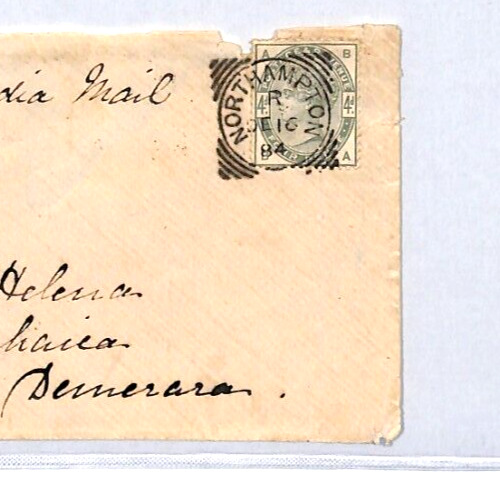 dia Mail
A B
NORTHAMPTON
R
DE 16
84
4d. 4d.
B A
Helena
haica
Demerara.